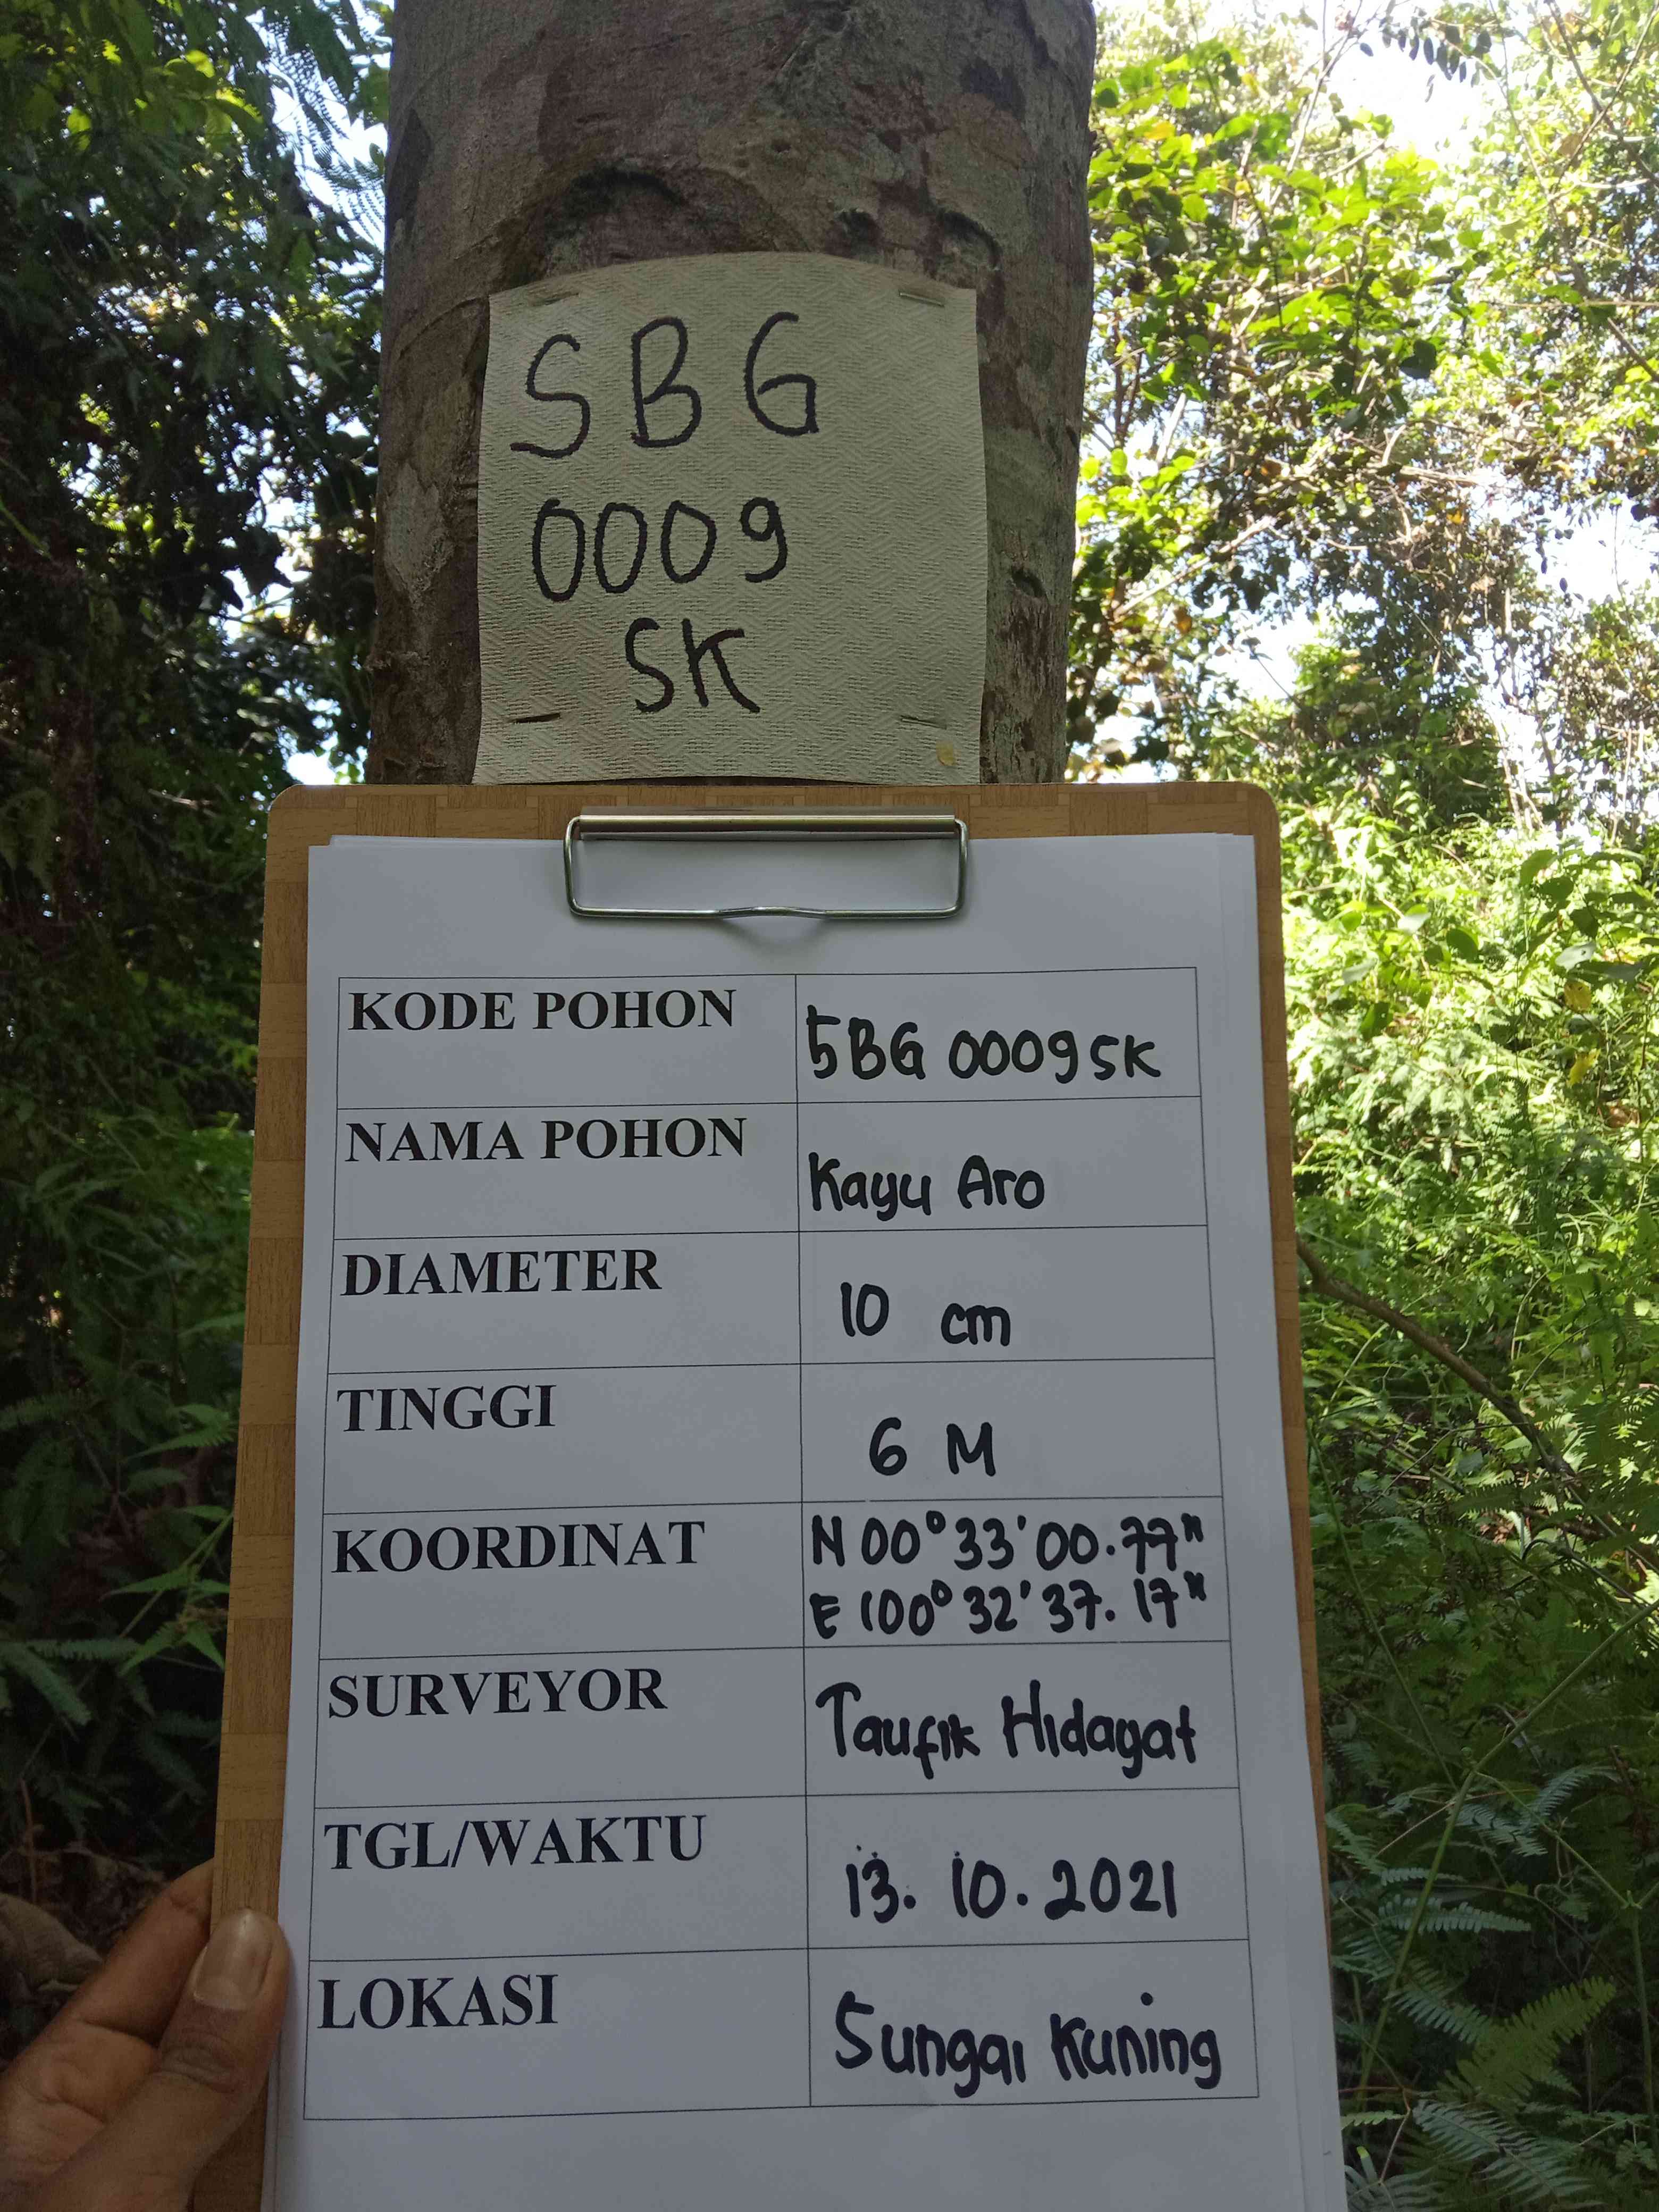 SBG
0009
SK
KODE POHON
SBG 0009 SK
NAMA POHON
Kayu Aro
DIAMETER
10 cm
TINGGI
6 M
KOORDINAT
N 00° 33' 00.77"
E 100° 32' 37.17"
SURVEYOR
Taufik Hidayat
TGL/WAKTU
13.10.2021
LOKASI
Sungai Kuning